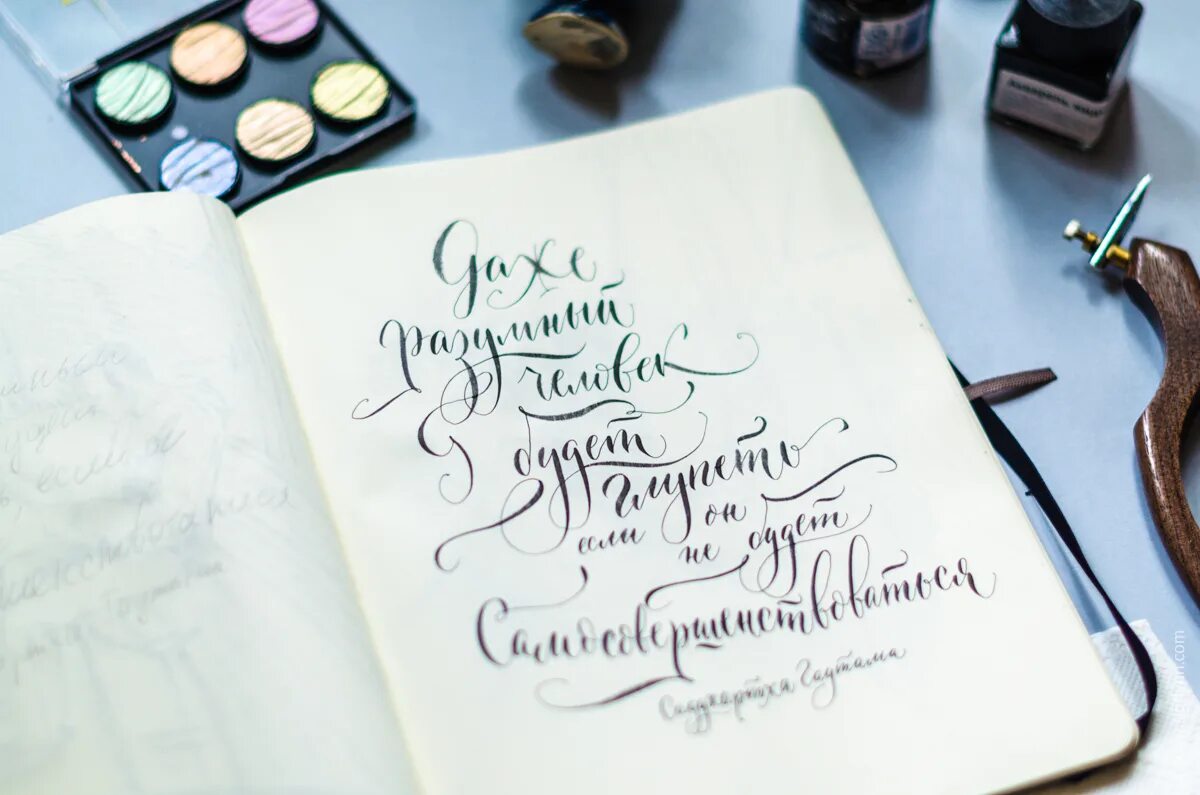 Даже
разумный
человек
будет
глупеть
если он
не будет
Самосовершенствоваться
Сиддхартха Гаутама
если